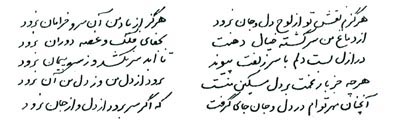 هرگزم نقش تو از لوح دل و جان نرود هرگز از یاد من آن سرو خرامان نرود
از دماغ من سرگشته خیال دهنت بجفای فلک و غصه دوران نرود
در ازل بست دلم با سر زلفت پیوند تا ابد سر نکشد وز سر پیمان نرود
هر چه جز بار غمت بر دل مسکین منست برود از دل من وز دل من آن نرود
آنچنان مهر توام در دل و جان جای گرفت که اگر سر برود از دل و از جان نرود